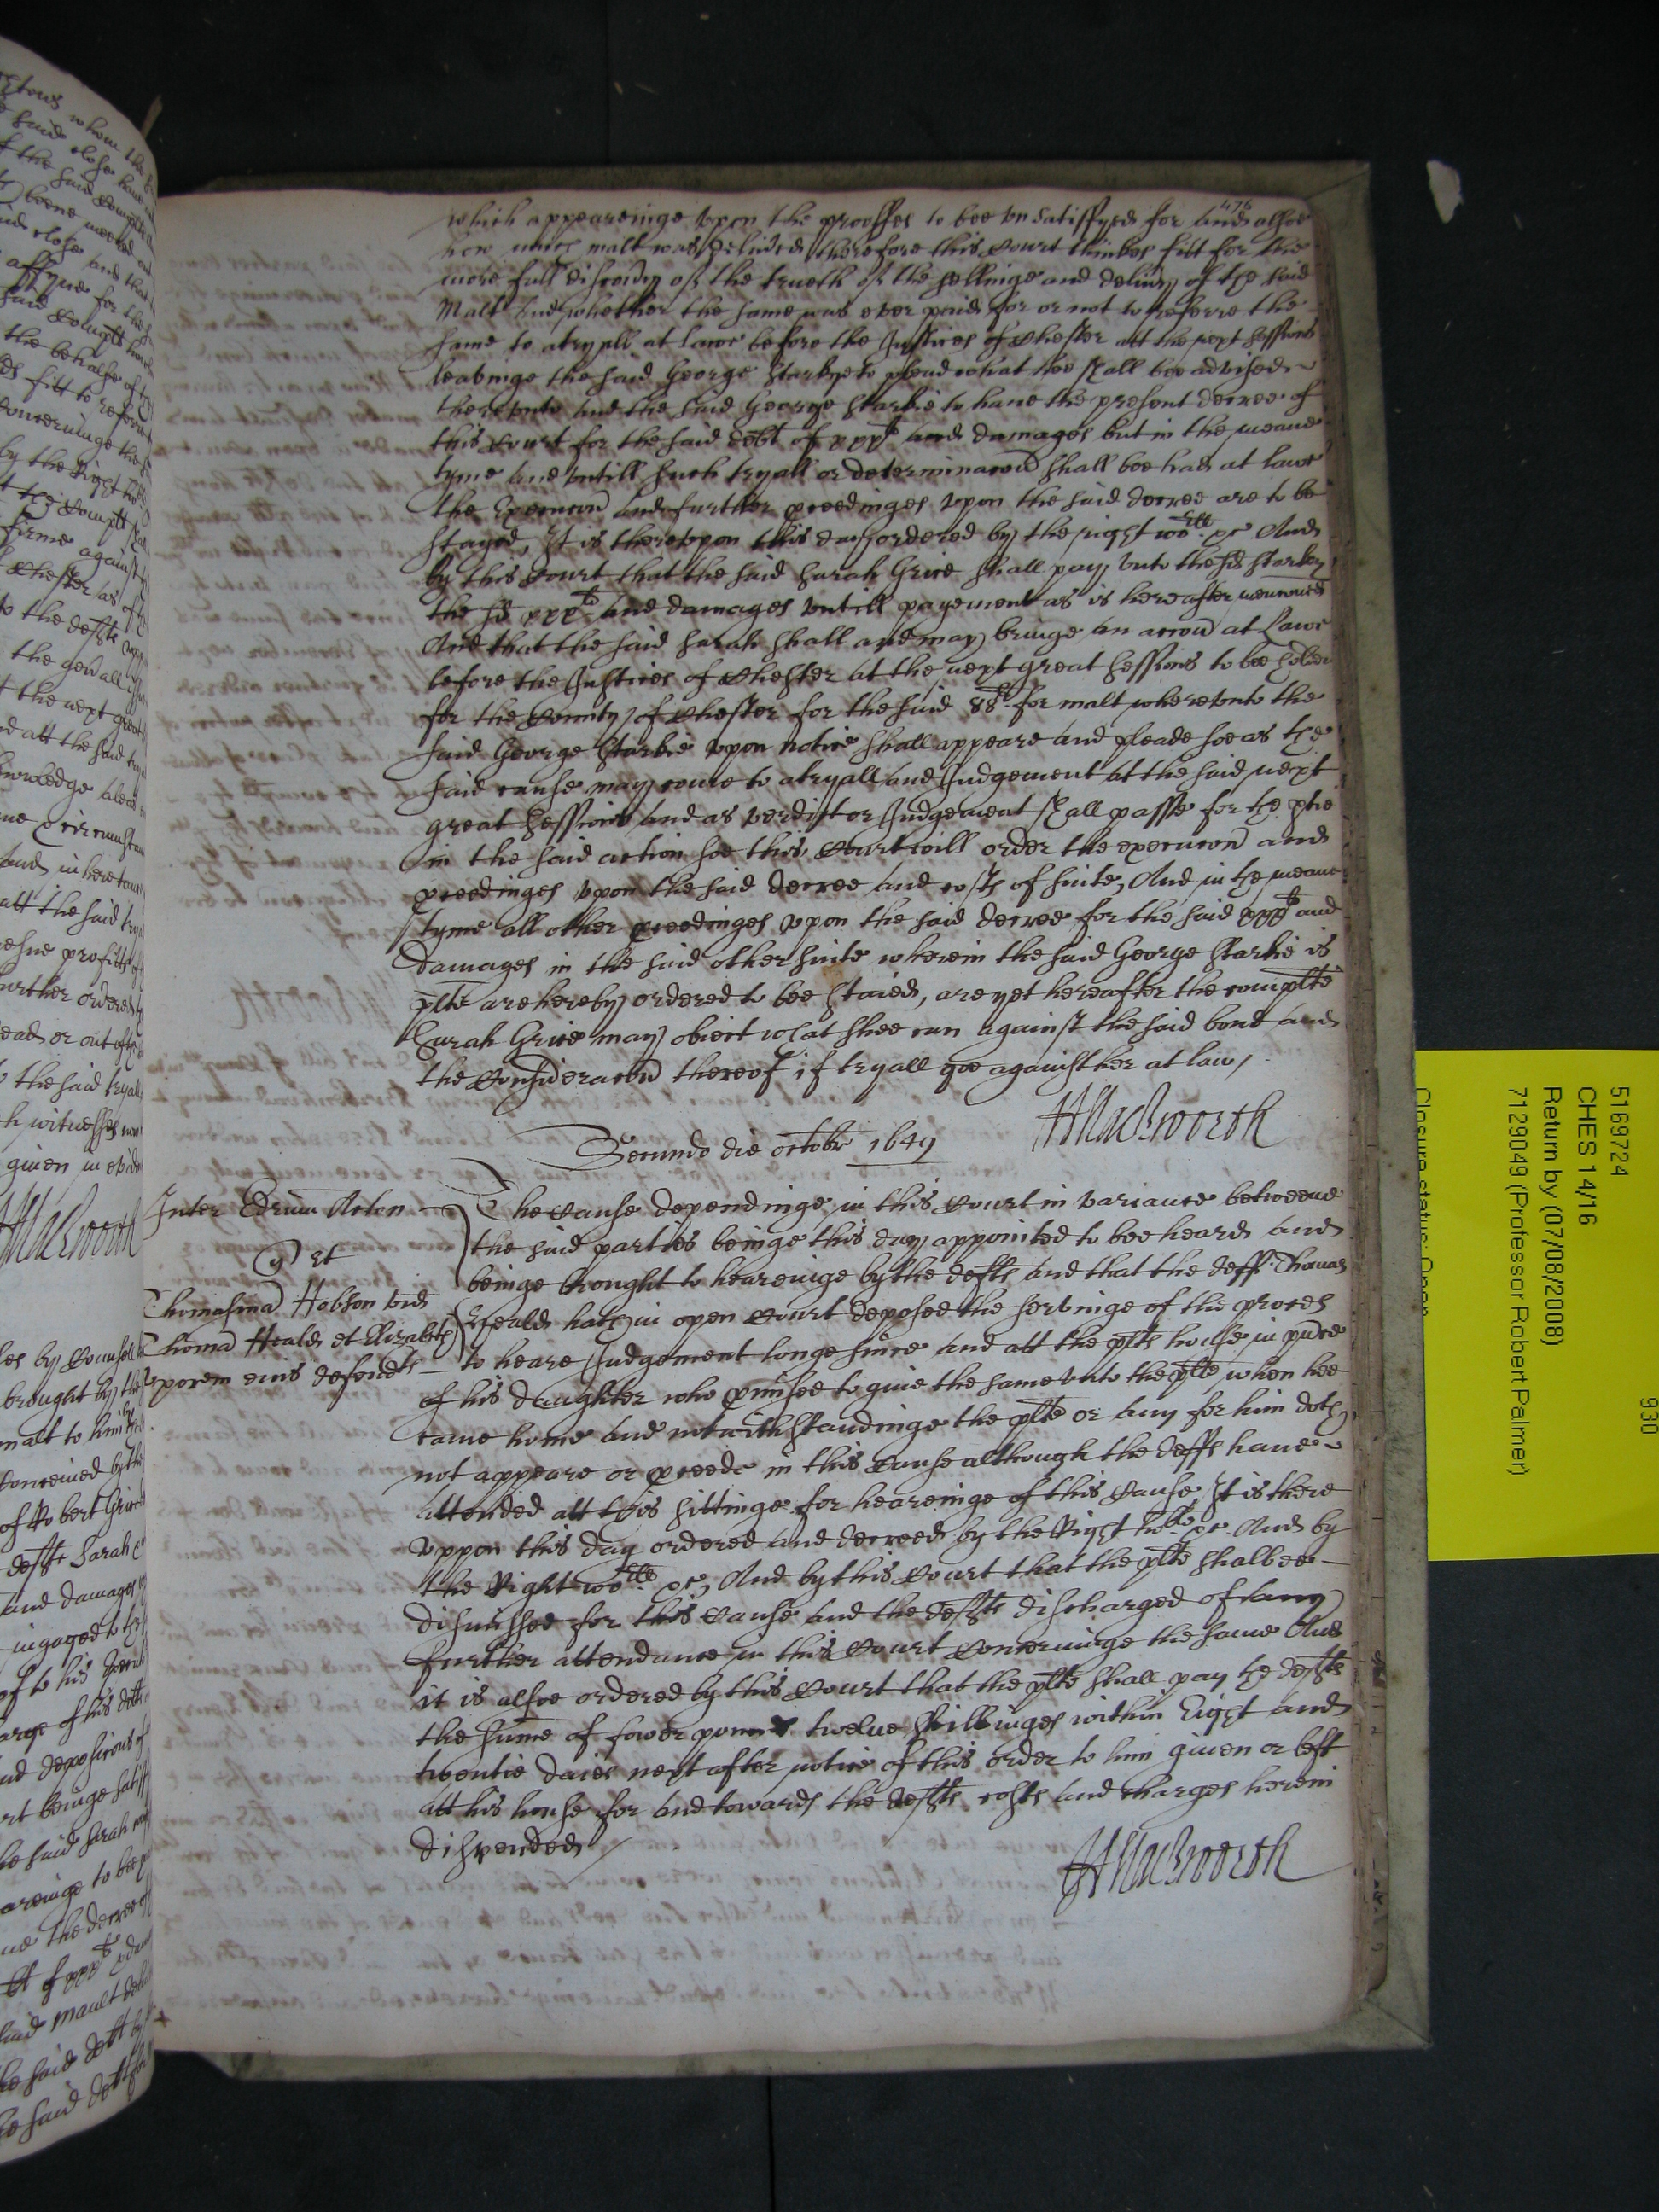 476
which appeareinge vpon the prooffes to bee vnsatisfyed for and alsoe
how much malt was delivered therefore this Court thinkes fitt for the
more full discovery of the trueth of the sellinge and delivy of the said
Malt and whether the same was ever paid for or not to referre the
same to a tryall at lawe before the Justices of Chester att the next Sessions
leavinge the said George Starkye to plead what hee shall bee advised
therevnto and the said George Starkie to haue the present decree of
this Court for the said debt of xxxli and damages but in the meane
tyme and vntill such tryall or determinacon shall bee had at lawe
the Execucon and further pceedinges vpon the said decree are to be
stayed, It is therevpon this day ordered by the right worll &c And
by this Court that the said Sarah Grice shall pay vnto the sd Starkey
the sd xxxli and damages vntill payement as is hereafter menconed
And that the said Sarah shall and may bringe an accon at Lawe
before the Justices of Chester at the next great Sessions to bee holden
for the County of Chester for the said 88li for malt wherevnto the
said George Starkie vpon notice shall appeare and pleade soe as the
said cause may come to a tryall and Judgement at the said next
great Sessions and as verdict or Judgement shall passe for the ptie
in the said action soe this Court will order the execucon and
pceedinges vpon the said decree and costs of suite, And in the meane
tyme all other pceedinges vpon the said decree for the said xxxli and
damages in the said other suite wherein the said George Starkie is
plte are hereby ordered to bee staied, are yet hereafter the complte
Sarah Grice may obiect what shee can against the said bond and
the Consideracon thereof if tryall goe against her at law,
HMackworth
Secundo die octobr 1649
Inter Edrum Acton
q et
Thomasina Hobson vid
Thoma Heald et Elizabeth
vxorem eius defendts
The Cause dependinge in this Court in variance betweene
the said parties beinge this day appointed to bee heard and
beinge brought to heareinge by the defts and that the defft Thomas
Heald hath in open Court deposed the servinge of the proces
to heare Judgement longe since and att the plts house in pnce
of his daughter who pmised to giue the same vnto the plte when hee
came home and notwithstandinge the plte or any for him doth
not appeare or pceede in this Cause although the deffts haue
attended att this sittinge for heareinge of this Cause It is there
vppon this day ordered and decreed by the Right hoble &c And by
the Right worll &c, And by this Court that the plte shalbee
dismissed for this cause and the deffts discharged of any
further attendance in this Court Concerninge the same And
it is alsoe ordered by this Court that the plte shall pay the deffts
the sume of fower pounds twelue shillinges within Eight and
twentie daies next after notice of this order to him given or left
att his house for and towards the deffts costs and charges herein
dispended
HMackworth
5169724
CHES 14/16
Return by (07/08/2008)
7129049 (Professor Robert Palmer)
Closure status: Open
930